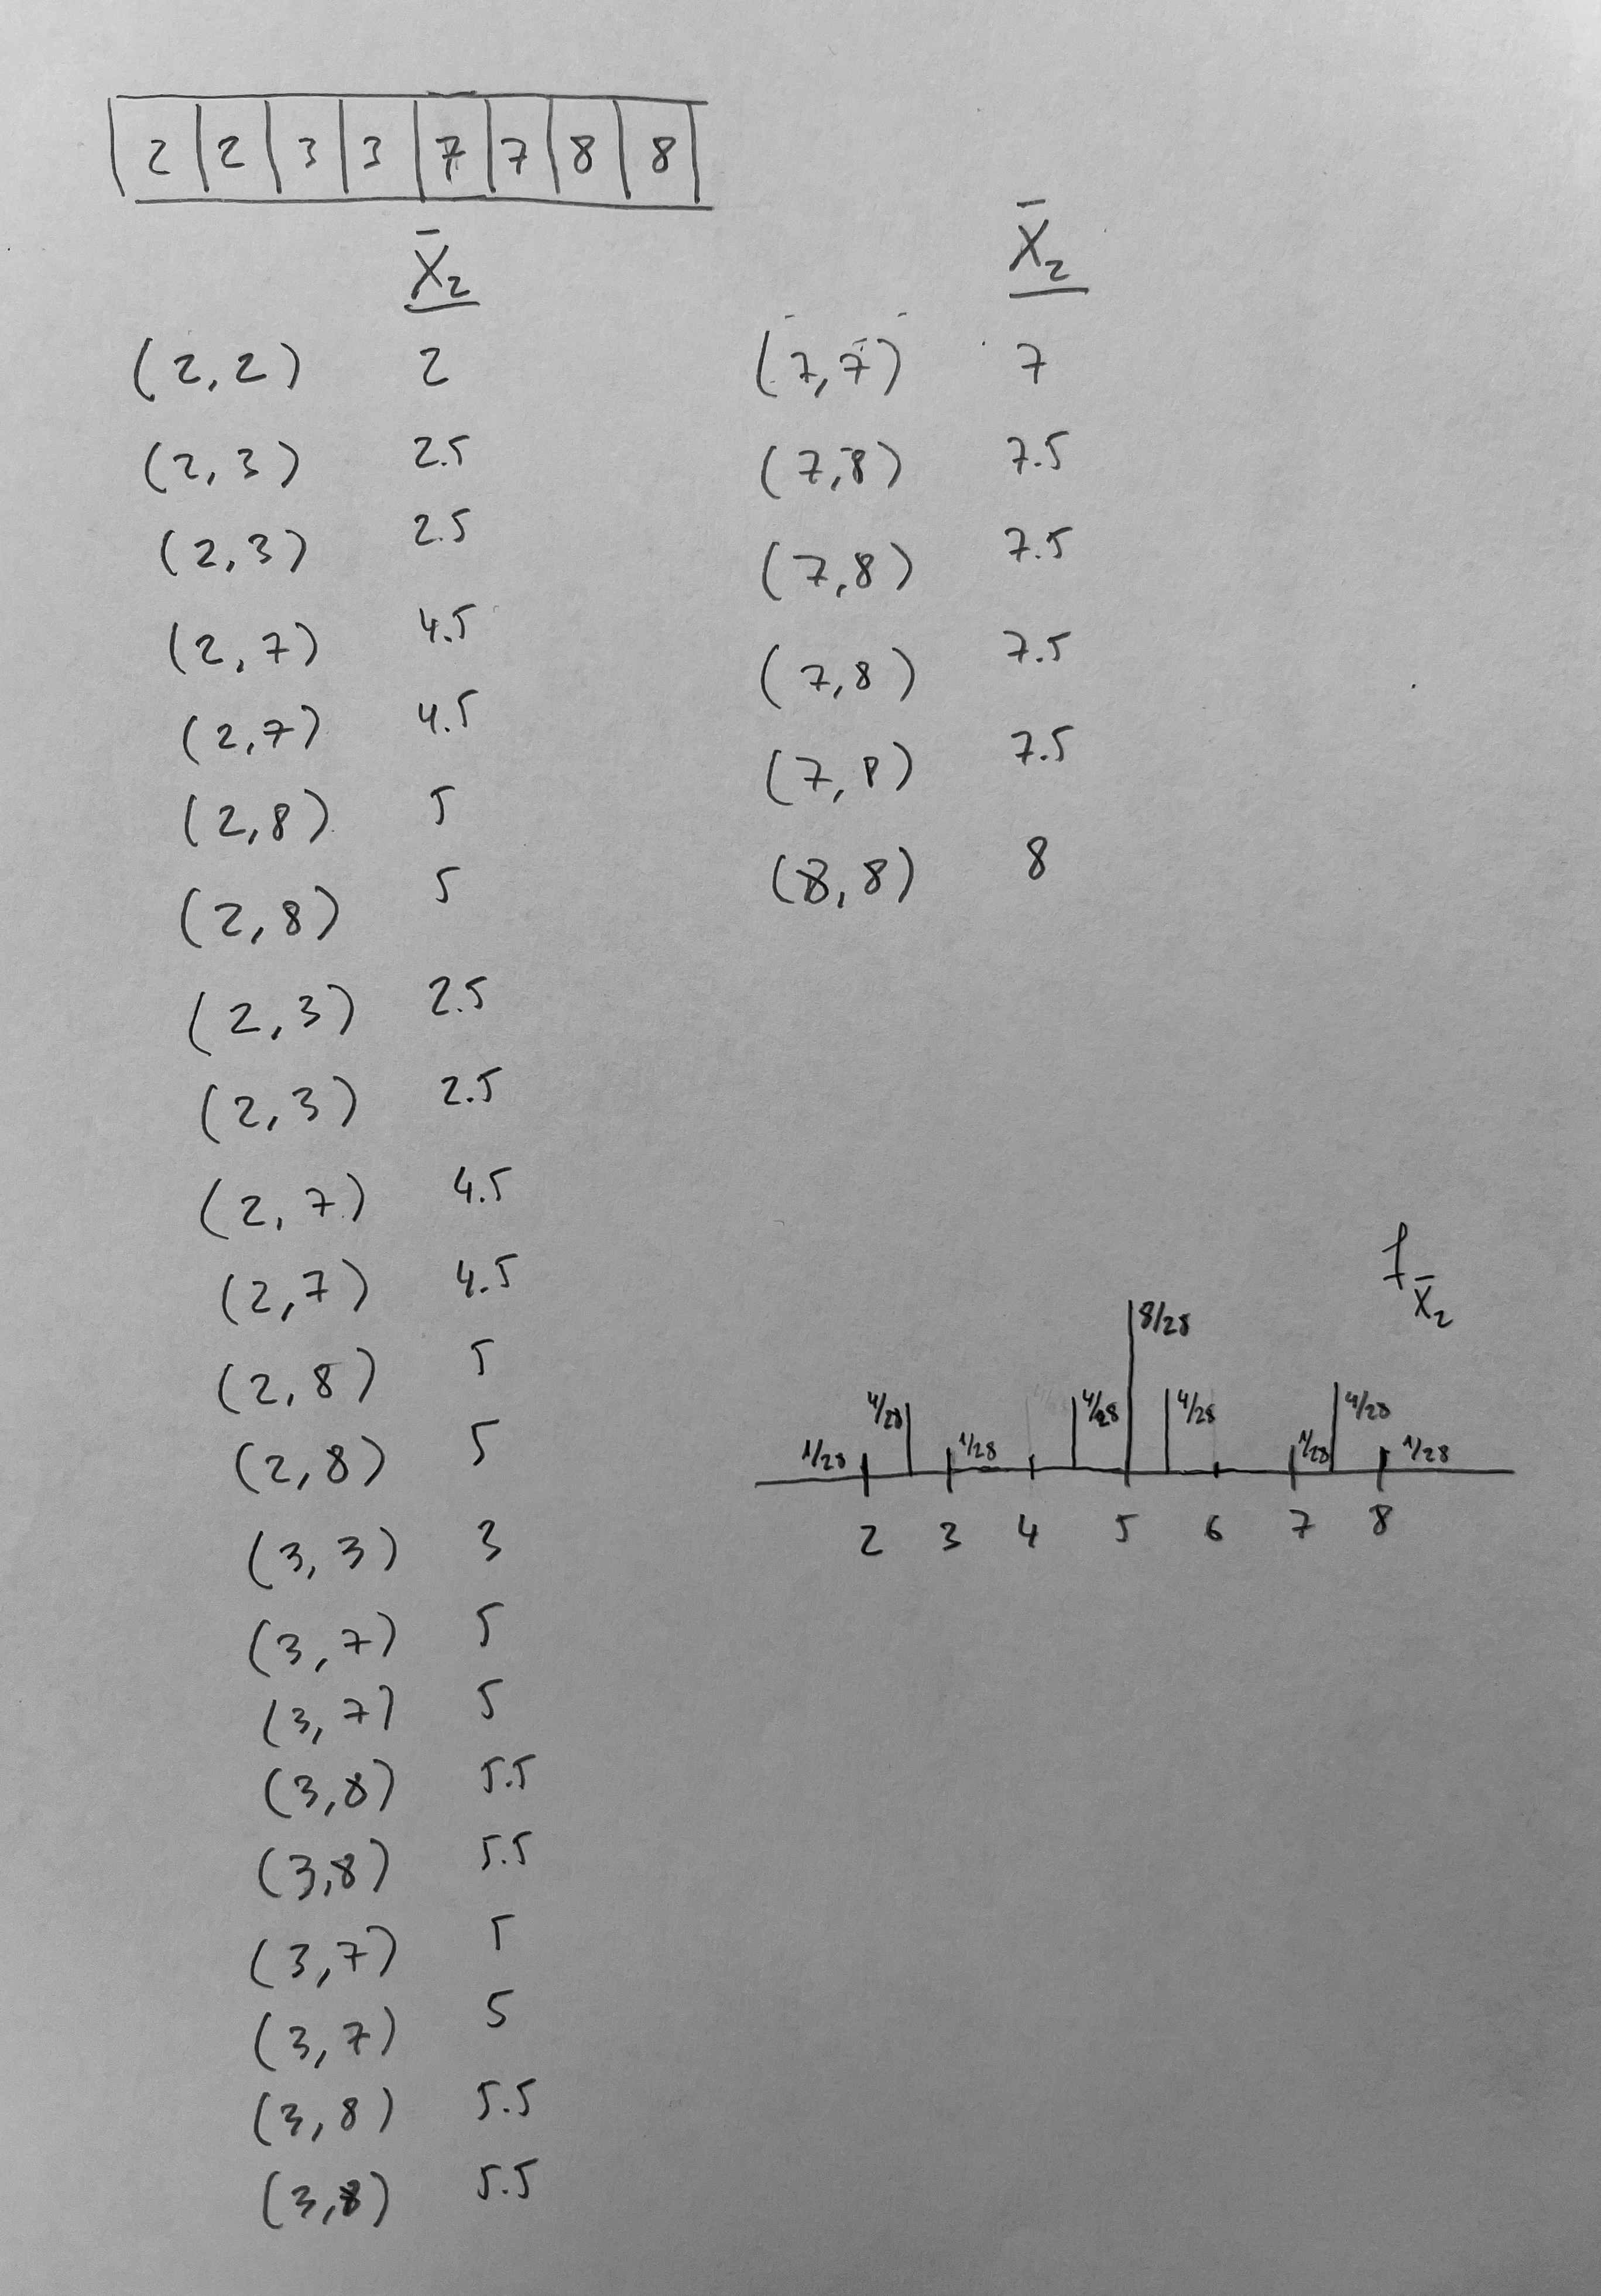 2 2 3 3 7 7 8 8
X̄₂
(2,2) 2
(2,3) 2.5
(2,3) 2.5
(2,7) 4.5
(2,7) 4.5
(2,8) 5
(2,8) 5
(2,3) 2.5
(2,3) 2.5
(2,7) 4.5
(2,7) 4.5
(2,8) 5
(2,8) 5
(3,3) 3
(3,7) 5
(3,7) 5
(3,8) 5.5
(3,8) 5.5
(3,7) 5
(3,7) 5
(3,8) 5.5
(3,8) 5.5
X̄₂
(7,7) 7
(7,8) 7.5
(7,8) 7.5
(7,8) 7.5
(7,8) 7.5
(8,8) 8
f_X̄₂
1/28 4/28 1/28 4/28 8/28 4/28 1/28 4/28 1/28
2 3 4 5 6 7 8